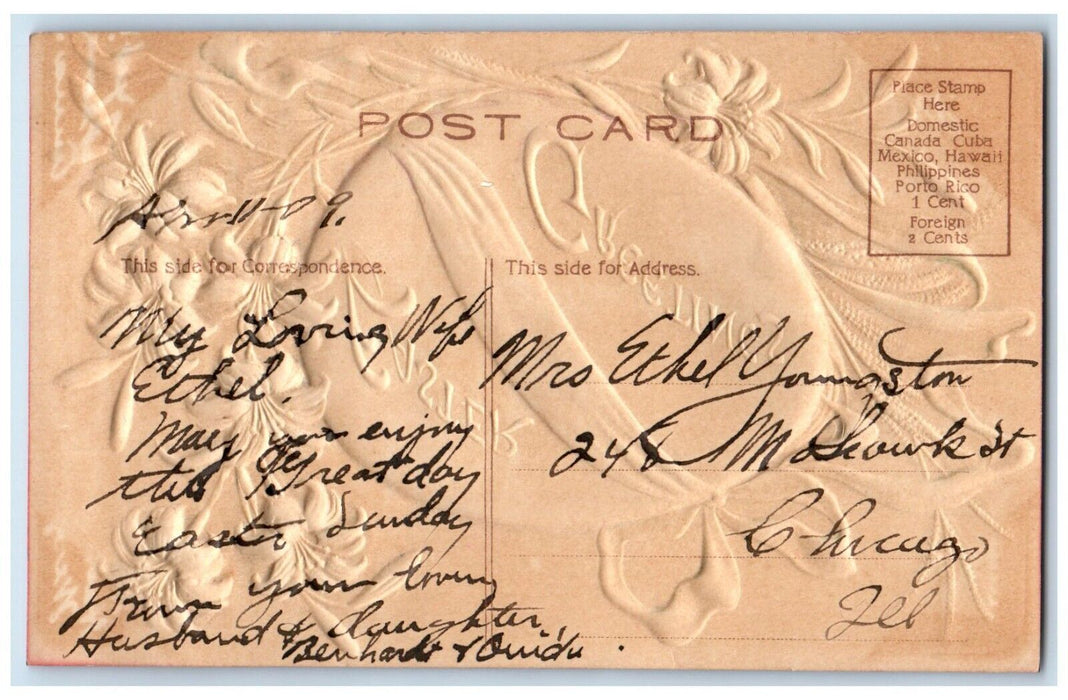 POST CARD
Place Stamp
Here
Domestic
Canada Cuba
Mexico, Hawaii
Philippines
Porto Rico
1 Cent
Foreign
2 Cents
This side for Correspondence.
My Loving Wife
Ethel.
May you enjoy
this Great day
Easter Sunday
From your loving
Husband & daughter,
This side for Address.
Mrs Ethel Youngston
248
Chicago
Ill